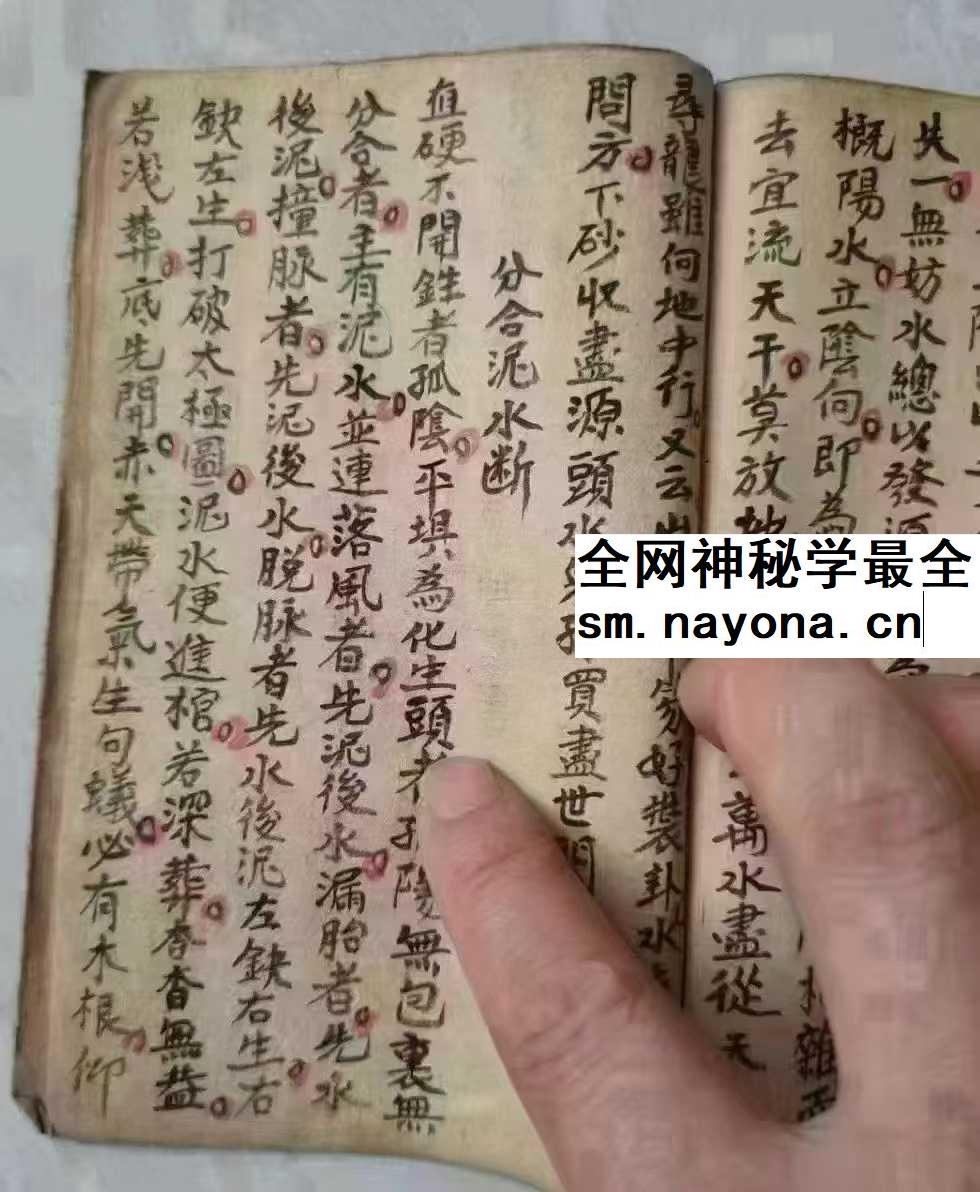 失一無妨水總以發源
概陽水立陰向即為
去宜流天干莫放 萬水盡從天
尋龍雖向地中行又云 好裝卦水
問方下砂收盡源頭水 買盡世
分合泥水断
直硬不開鉎者孤陰平垻為化生頭者孤陰無包裏無
分合者主有泥水並連落風者先泥後水漏胎者先水
後泥撞脉者先泥後水脱脉者先水後泥左鈌右生右
鈌左生打破太極圖泥水便進棺若深葬杳杳無益
若淺葬底先開赤天帶氣生句蟻必有木根仰
全网神秘学最全
sm.nayona.cn